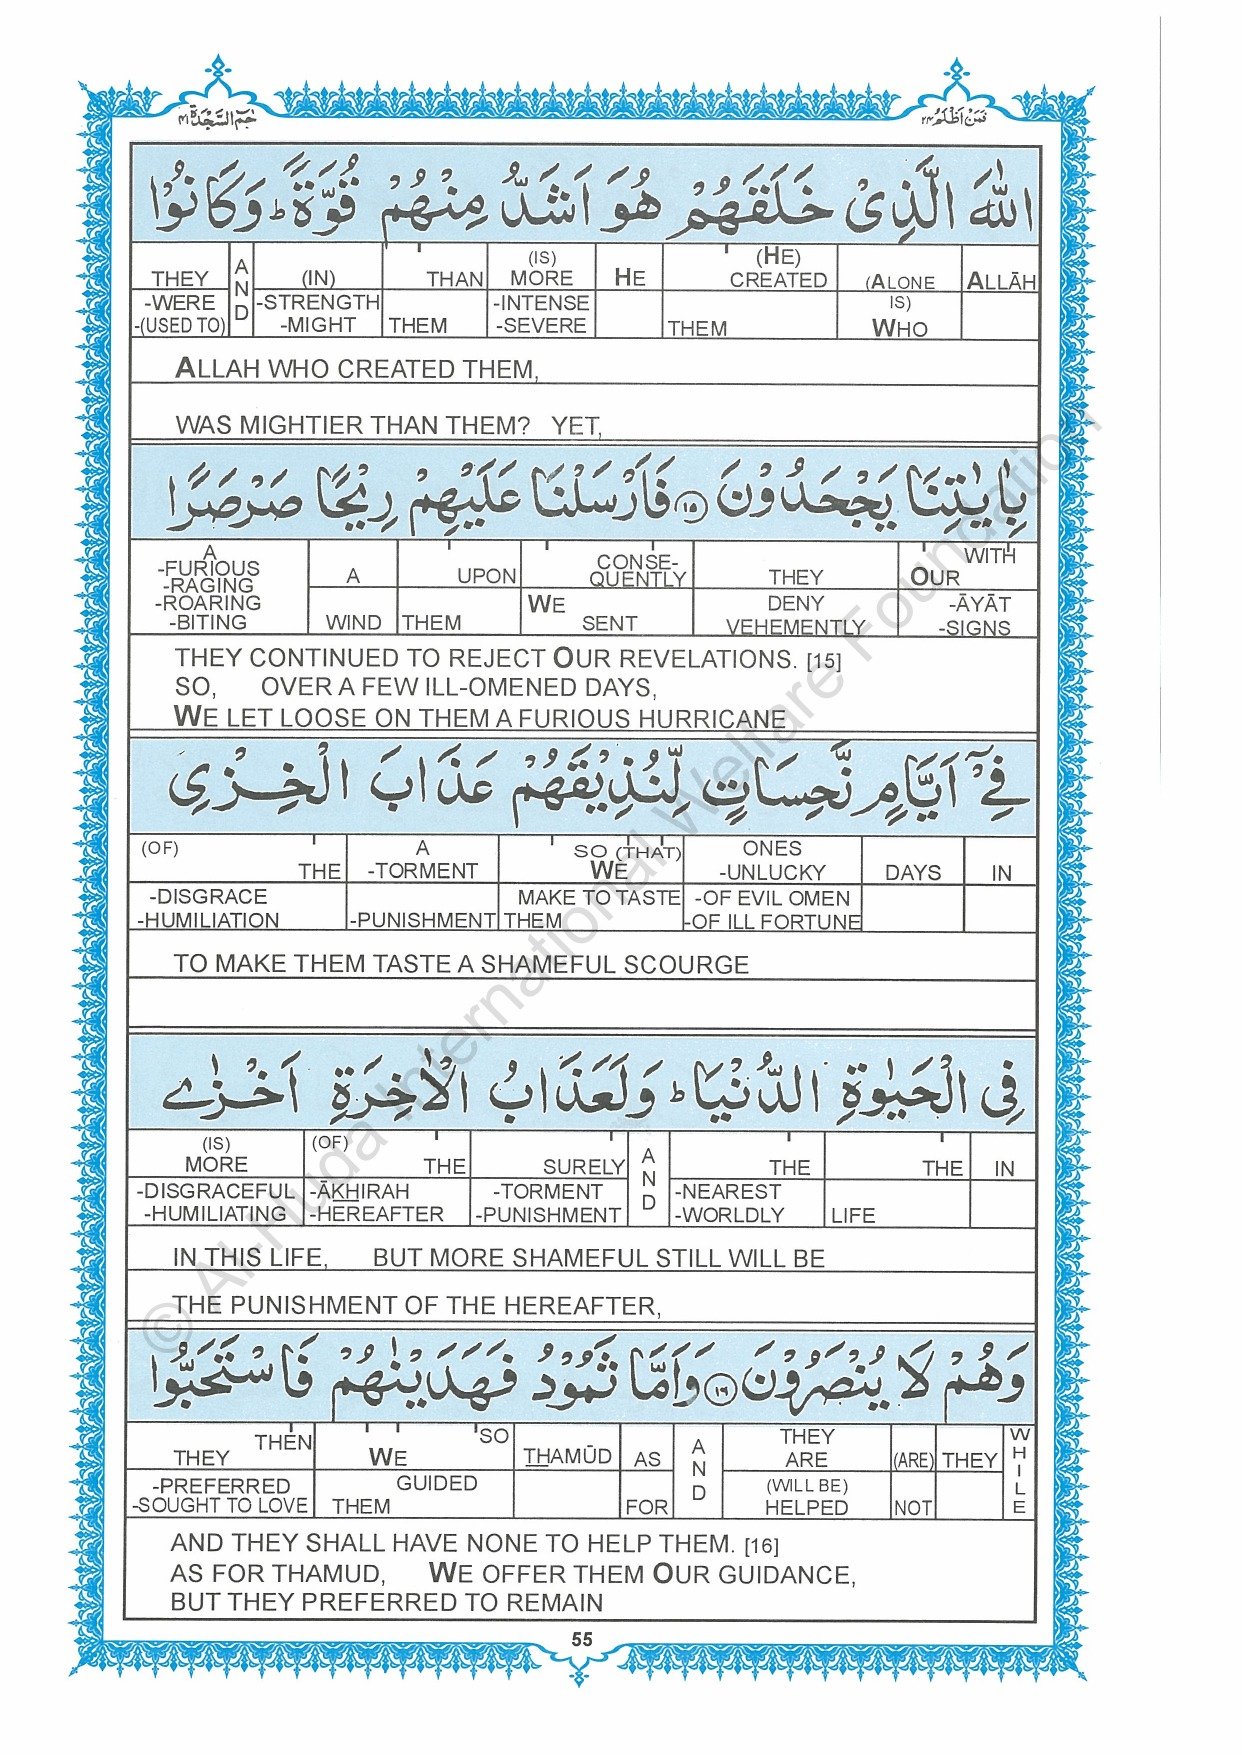 حٰمٓ السَّجْدَة ٤١
فَمَنْ اَظْلَمُ ٢٤
اللّٰهَ الَّذِىْ خَلَقَهُمْ هُوَ اَشَدُّ مِنْهُمْ قُوَّةً ؕ وَكَانُوْا
THEY -WERE -(USED TO) AND (IN) -STRENGTH -MIGHT THAN THEM (IS) MORE -INTENSE -SEVERE HE (HE) CREATED THEM (ALONE IS) WHO ALLĀH
ALLAH WHO CREATED THEM,
WAS MIGHTIER THAN THEM? YET,
بِاٰيٰتِنَا يَجْحَدُوْنَ ﴿١٥﴾ فَاَرْسَلْنَا عَلَيْهِمْ رِيْحًا صَرْصَرًا
A -FURIOUS -RAGING -ROARING -BITING A WIND UPON THEM CONSE-QUENTLY WE SENT THEY DENY VEHEMENTLY WITH OUR -ĀYĀT -SIGNS
THEY CONTINUED TO REJECT OUR REVELATIONS. [15]
SO, OVER A FEW ILL-OMENED DAYS,
WE LET LOOSE ON THEM A FURIOUS HURRICANE
فِىْٓ اَيَّامٍ نَّحِسَاتٍ لِّنُذِيْقَهُمْ عَذَابَ الْخِزْىِ
(OF) THE -DISGRACE -HUMILIATION A -TORMENT -PUNISHMENT SO (THAT) WE MAKE TO TASTE THEM ONES -UNLUCKY -OF EVIL OMEN -OF ILL FORTUNE DAYS IN
TO MAKE THEM TASTE A SHAMEFUL SCOURGE
فِى الْحَيٰوةِ الدُّنْيَا ؕ وَلَعَذَابُ الْاٰخِرَةِ اَخْزٰى
(IS) MORE -DISGRACEFUL -HUMILIATING (OF) THE -ĀKHIRAH -HEREAFTER SURELY -TORMENT -PUNISHMENT AND THE -NEAREST -WORLDLY THE LIFE IN
IN THIS LIFE, BUT MORE SHAMEFUL STILL WILL BE
THE PUNISHMENT OF THE HEREAFTER,
وَهُمْ لَا يُنْصَرُوْنَ ﴿١٦﴾ وَاَمَّا ثَمُوْدُ فَهَدَيْنٰهُمْ فَاسْتَحَبُّوا
THEN THEY -PREFERRED -SOUGHT TO LOVE SO WE GUIDED THEM THAMŪD AS FOR AND THEY ARE (WILL BE) HELPED (ARE) NOT THEY WHILE
AND THEY SHALL HAVE NONE TO HELP THEM. [16]
AS FOR THAMUD, WE OFFER THEM OUR GUIDANCE,
BUT THEY PREFERRED TO REMAIN
55
© Al-Huda International Welfare Foundation